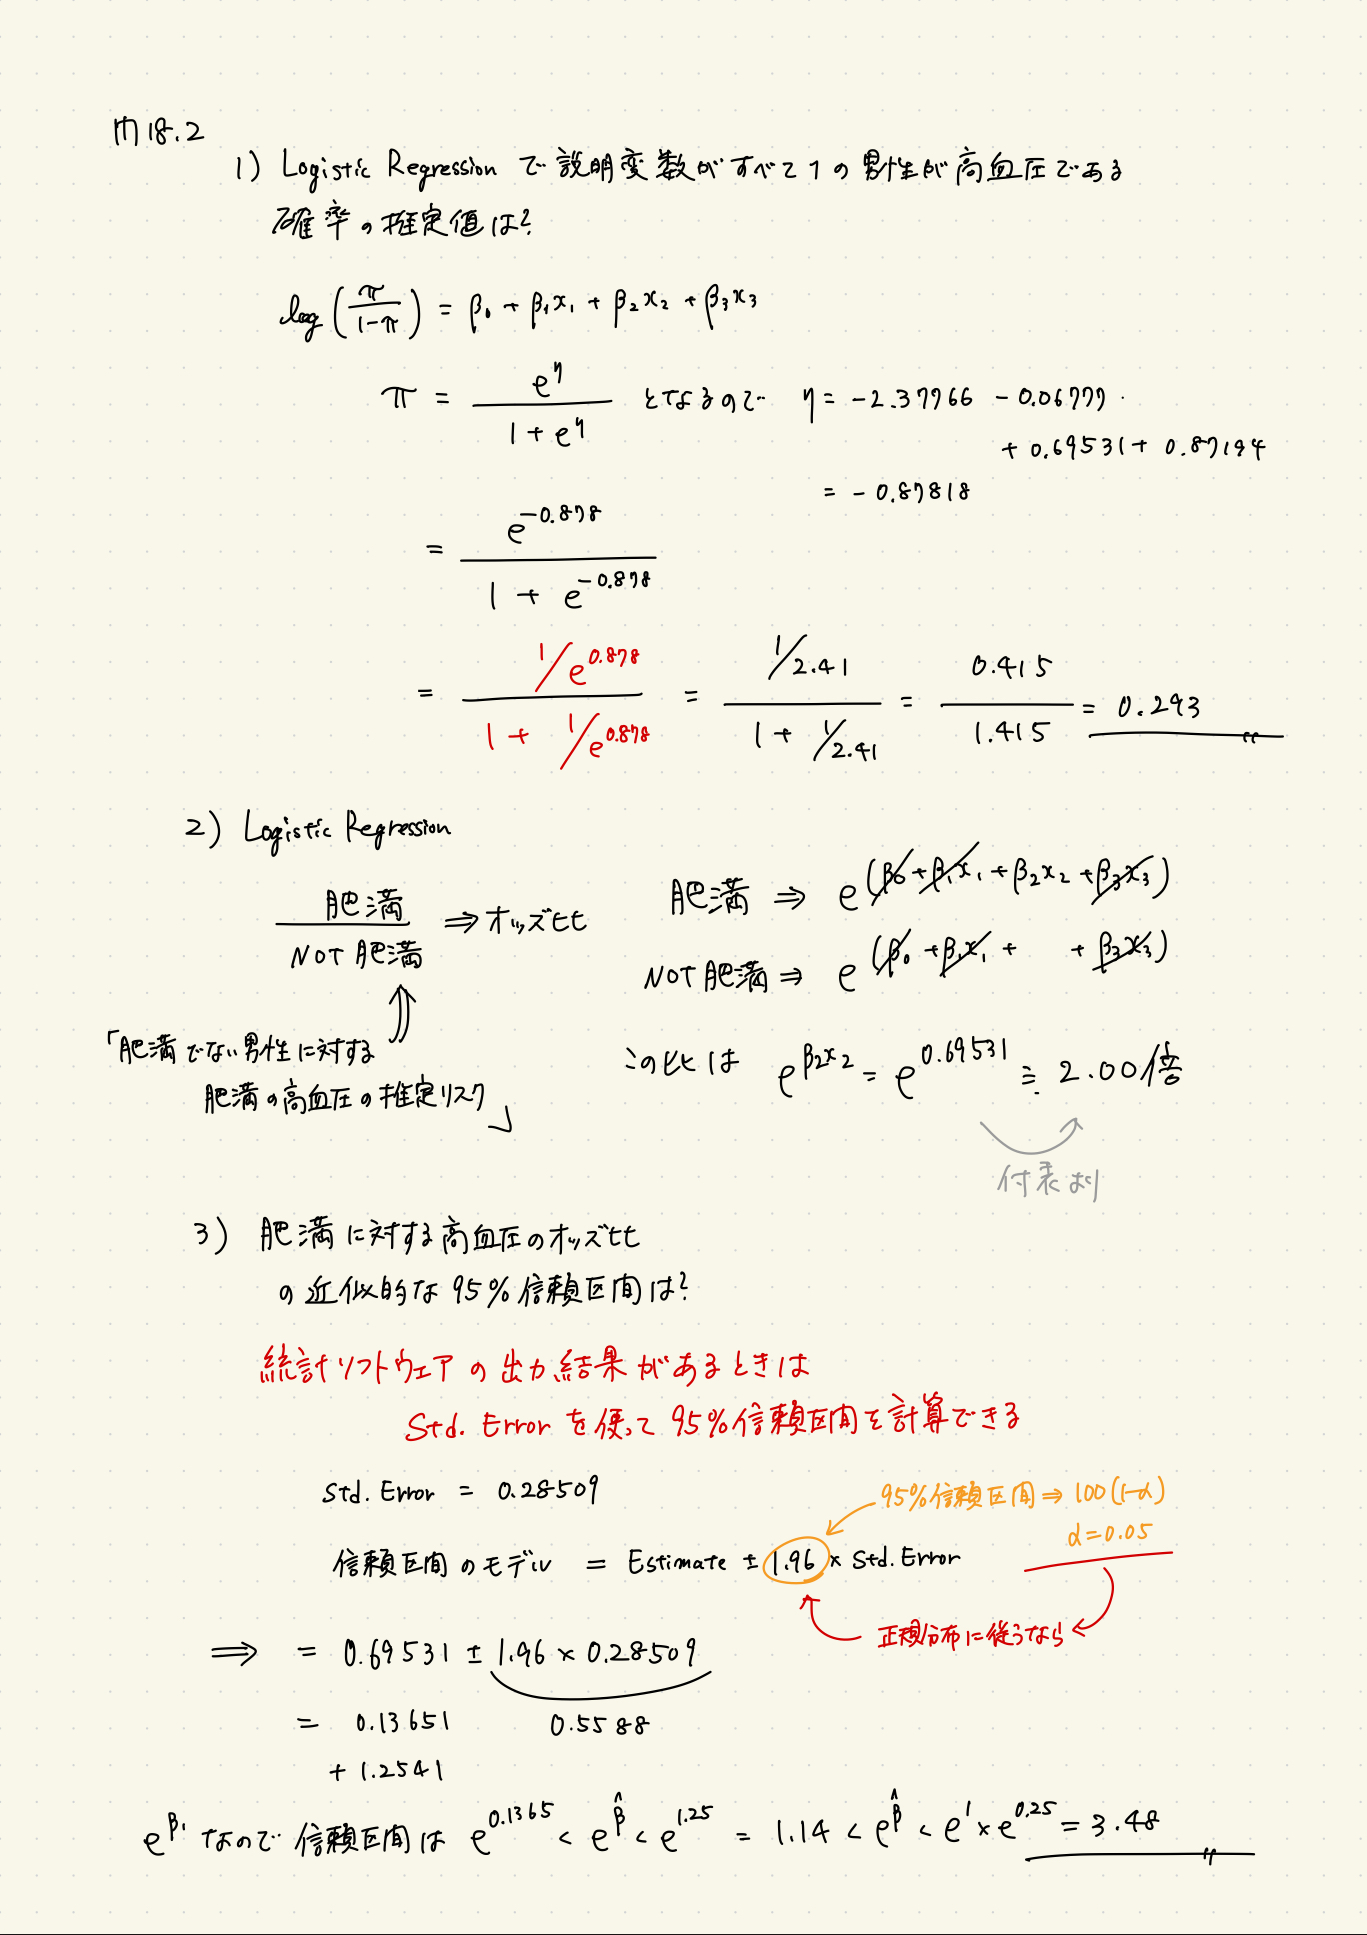 問18.2
1) Logistic Regression で 説明変数がすべて1の男性が高血圧である
確率の推定値は?
log(π/(1-π)) = β₀ + β₁x₁ + β₂x₂ + β₃x₃
π = e^η/(1 + e^η) となるので η = -2.37766 - 0.06777
+ 0.69531 + 0.87194
= -0.87818
= e^-0.878/(1 + e^-0.878)
= (1/e^0.878)/(1 + 1/e^0.878) = (1/2.41)/(1 + 1/2.41) = 0.415/1.415 = 0.293
2) Logistic Regression
肥満/NOT 肥満 ⇒ オッズ比
肥満 ⇒ e^(β₀ + β₁x₁ + β₂x₂ + β₃x₃)
NOT 肥満 ⇒ e^(β₀ + β₁x₁ + + β₃x₃)
「肥満でない男性に対する
肥満の高血圧の推定リスク」
この比は e^β₂x₂ = e^0.69531 ≒ 2.00倍
付表より
3) 肥満に対する高血圧のオッズ比
の近似的な95%信頼区間は?
統計ソフトウェアの出力結果があるときは
Std. Errorを使って95%信頼区間を計算できる
Std. Error = 0.28509
95%信頼区間 ⇒ 100(1-α)
α=0.05
信頼区間のモデル = Estimate ± 1.96 × Std. Error
正規分布に従うなら
⇒ = 0.69531 ± 1.96 × 0.28509
= 0.13651 0.5588
+ 1.2541
e^β₁ なので 信頼区間は e^0.1365 < e^β̂ < e^1.25 = 1.14 < e^β̂ < e^1 × e^0.25 = 3.48